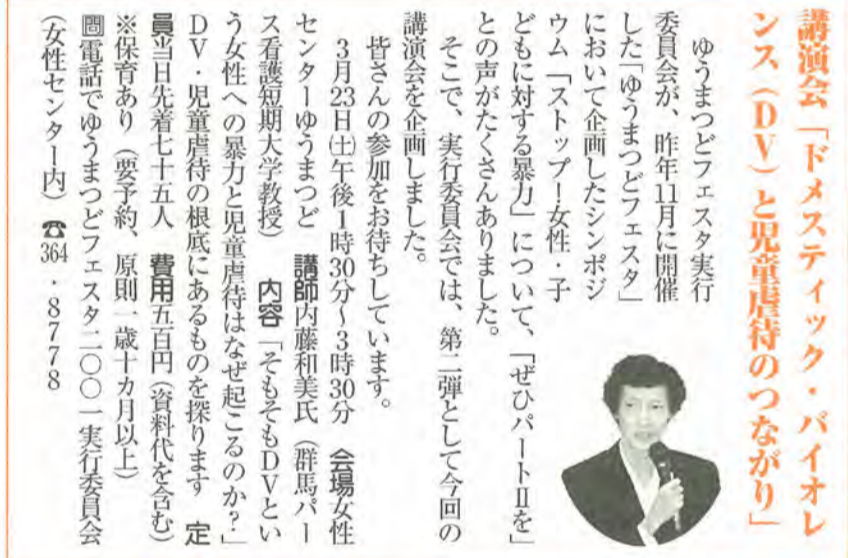 講演会「ドメスティック・バイオレ
ンス（DV）と児童虐待のつながり」
ゆうまつどフェスタ実行
委員会が、昨年11月に開催
した「ゆうまつどフェスタ」
において企画したシンポジ
ウム「ストップ！女性・子
どもに対する暴力」について、「ぜひパートⅡを」
との声がたくさんありました。
そこで、実行委員会では、第二弾として今回の
講演会を企画しました。
皆さんの参加をお待ちしています。
3月23日㈯午後1時30分～3時30分　会場女性
センターゆうまつど　講師内藤和美氏（群馬パー
ス看護短期大学教授）　内容「そもそもDVとい
う女性への暴力と児童虐待はなぜ起こるのか？」
DV・児童虐待の根底にあるものを探ります　定
員当日先着七十五人　費用五百円（資料代を含む）
※保育あり（要予約、原則一歳十カ月以上）
問電話でゆうまつどフェスタ二〇〇一実行委員会
（女性センター内）☎364・8778